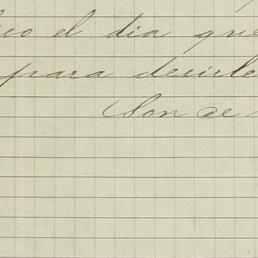 el dia que
para decirle
Son de